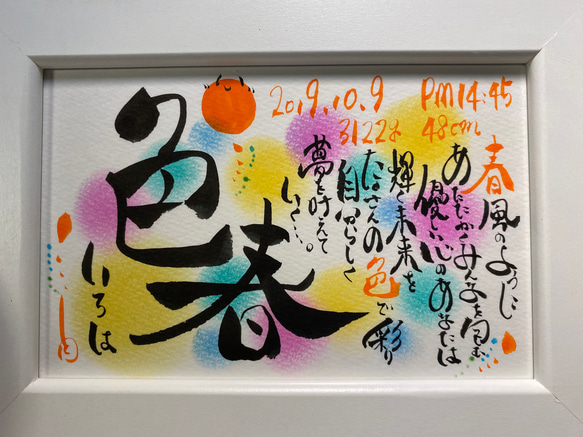 2019.10.9 PM14:45
3122g 48cm
春風のように
あたたかくみんなを包む
優しい心のあなたは
輝く未来を
たくさんの色で彩り
自分らしく
夢を叶えて
いく…。
色春
いろは